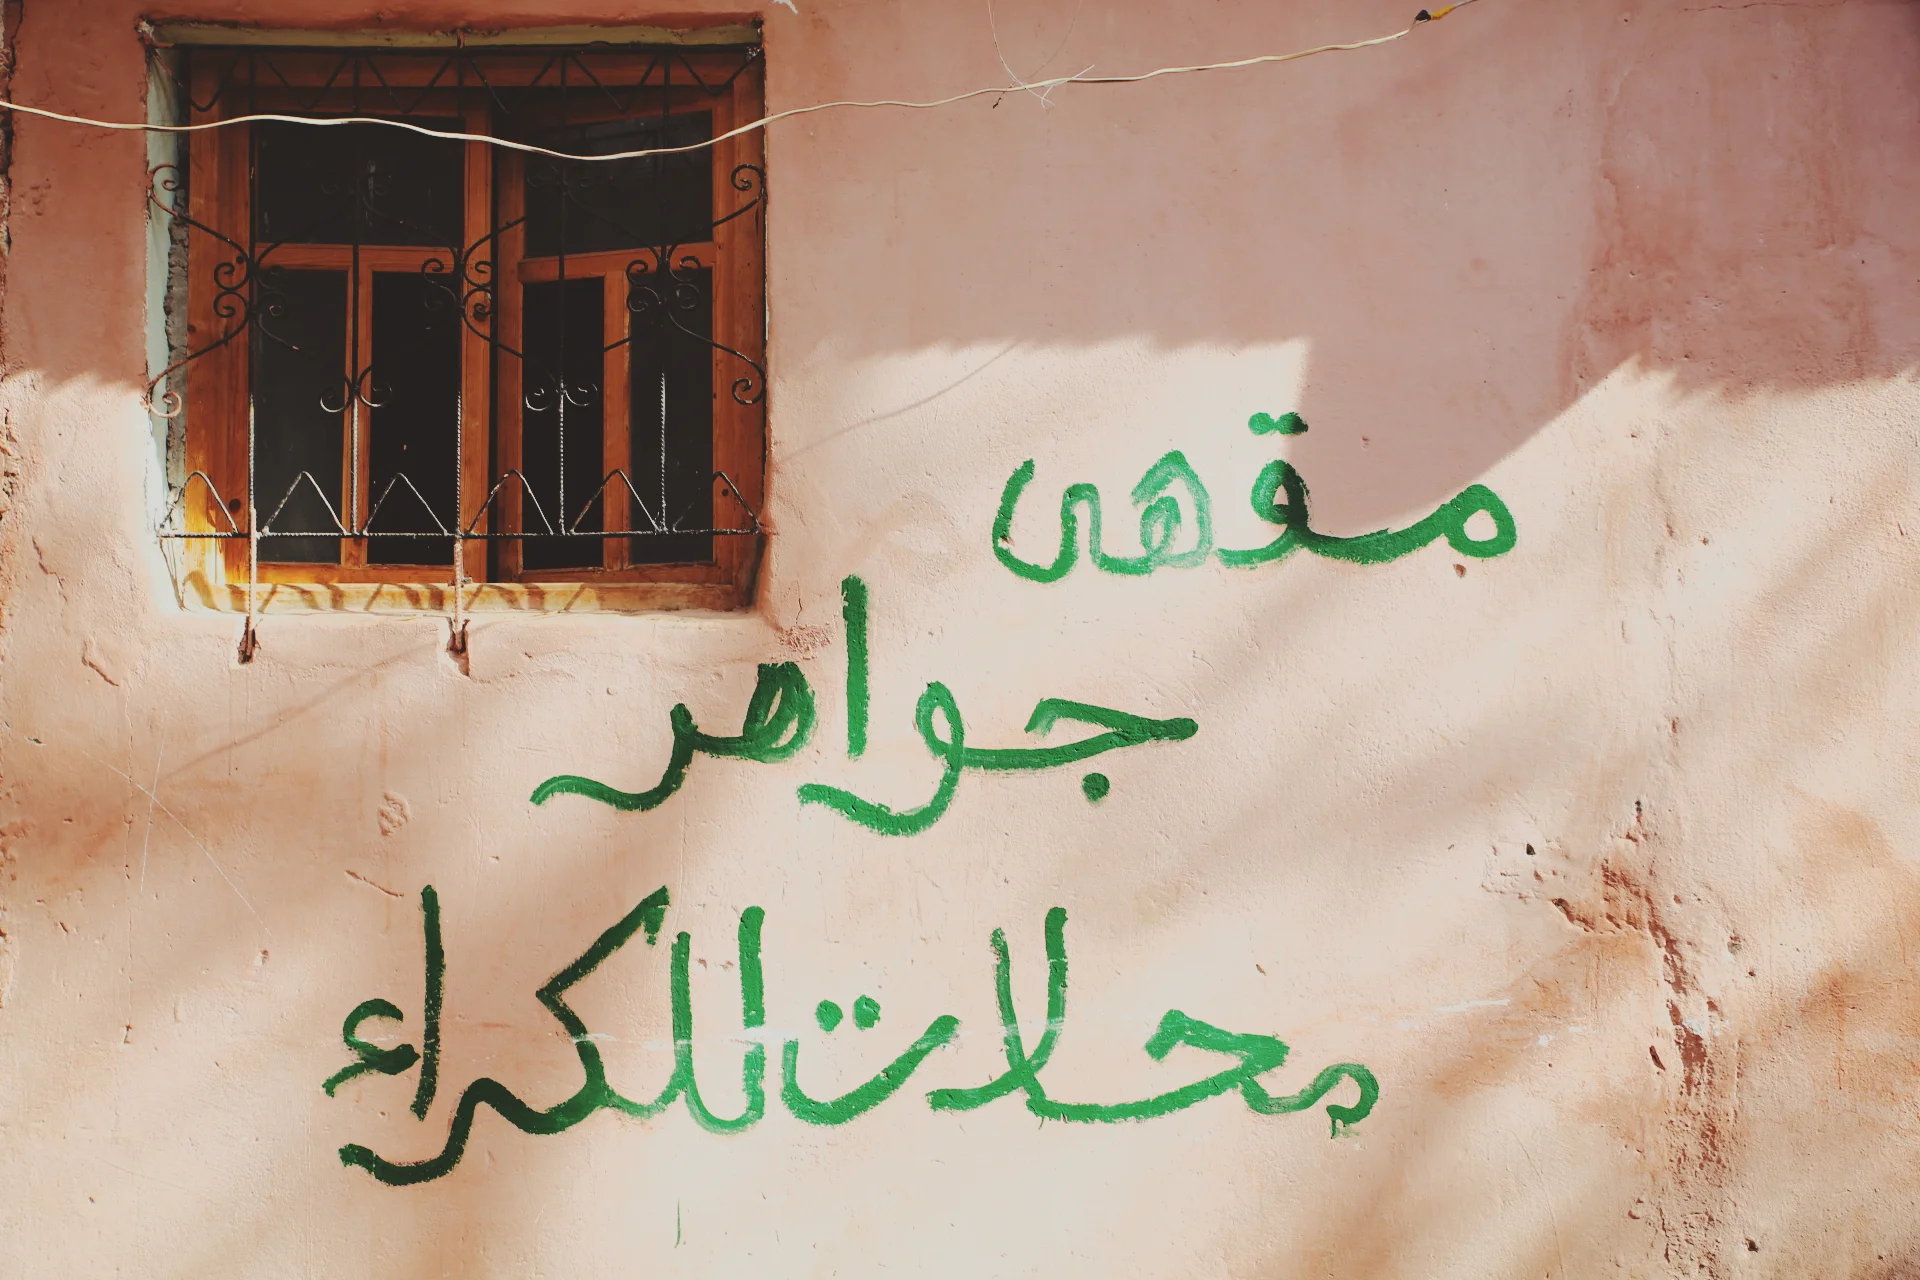 مقهى
جواهر
محلات للكراء